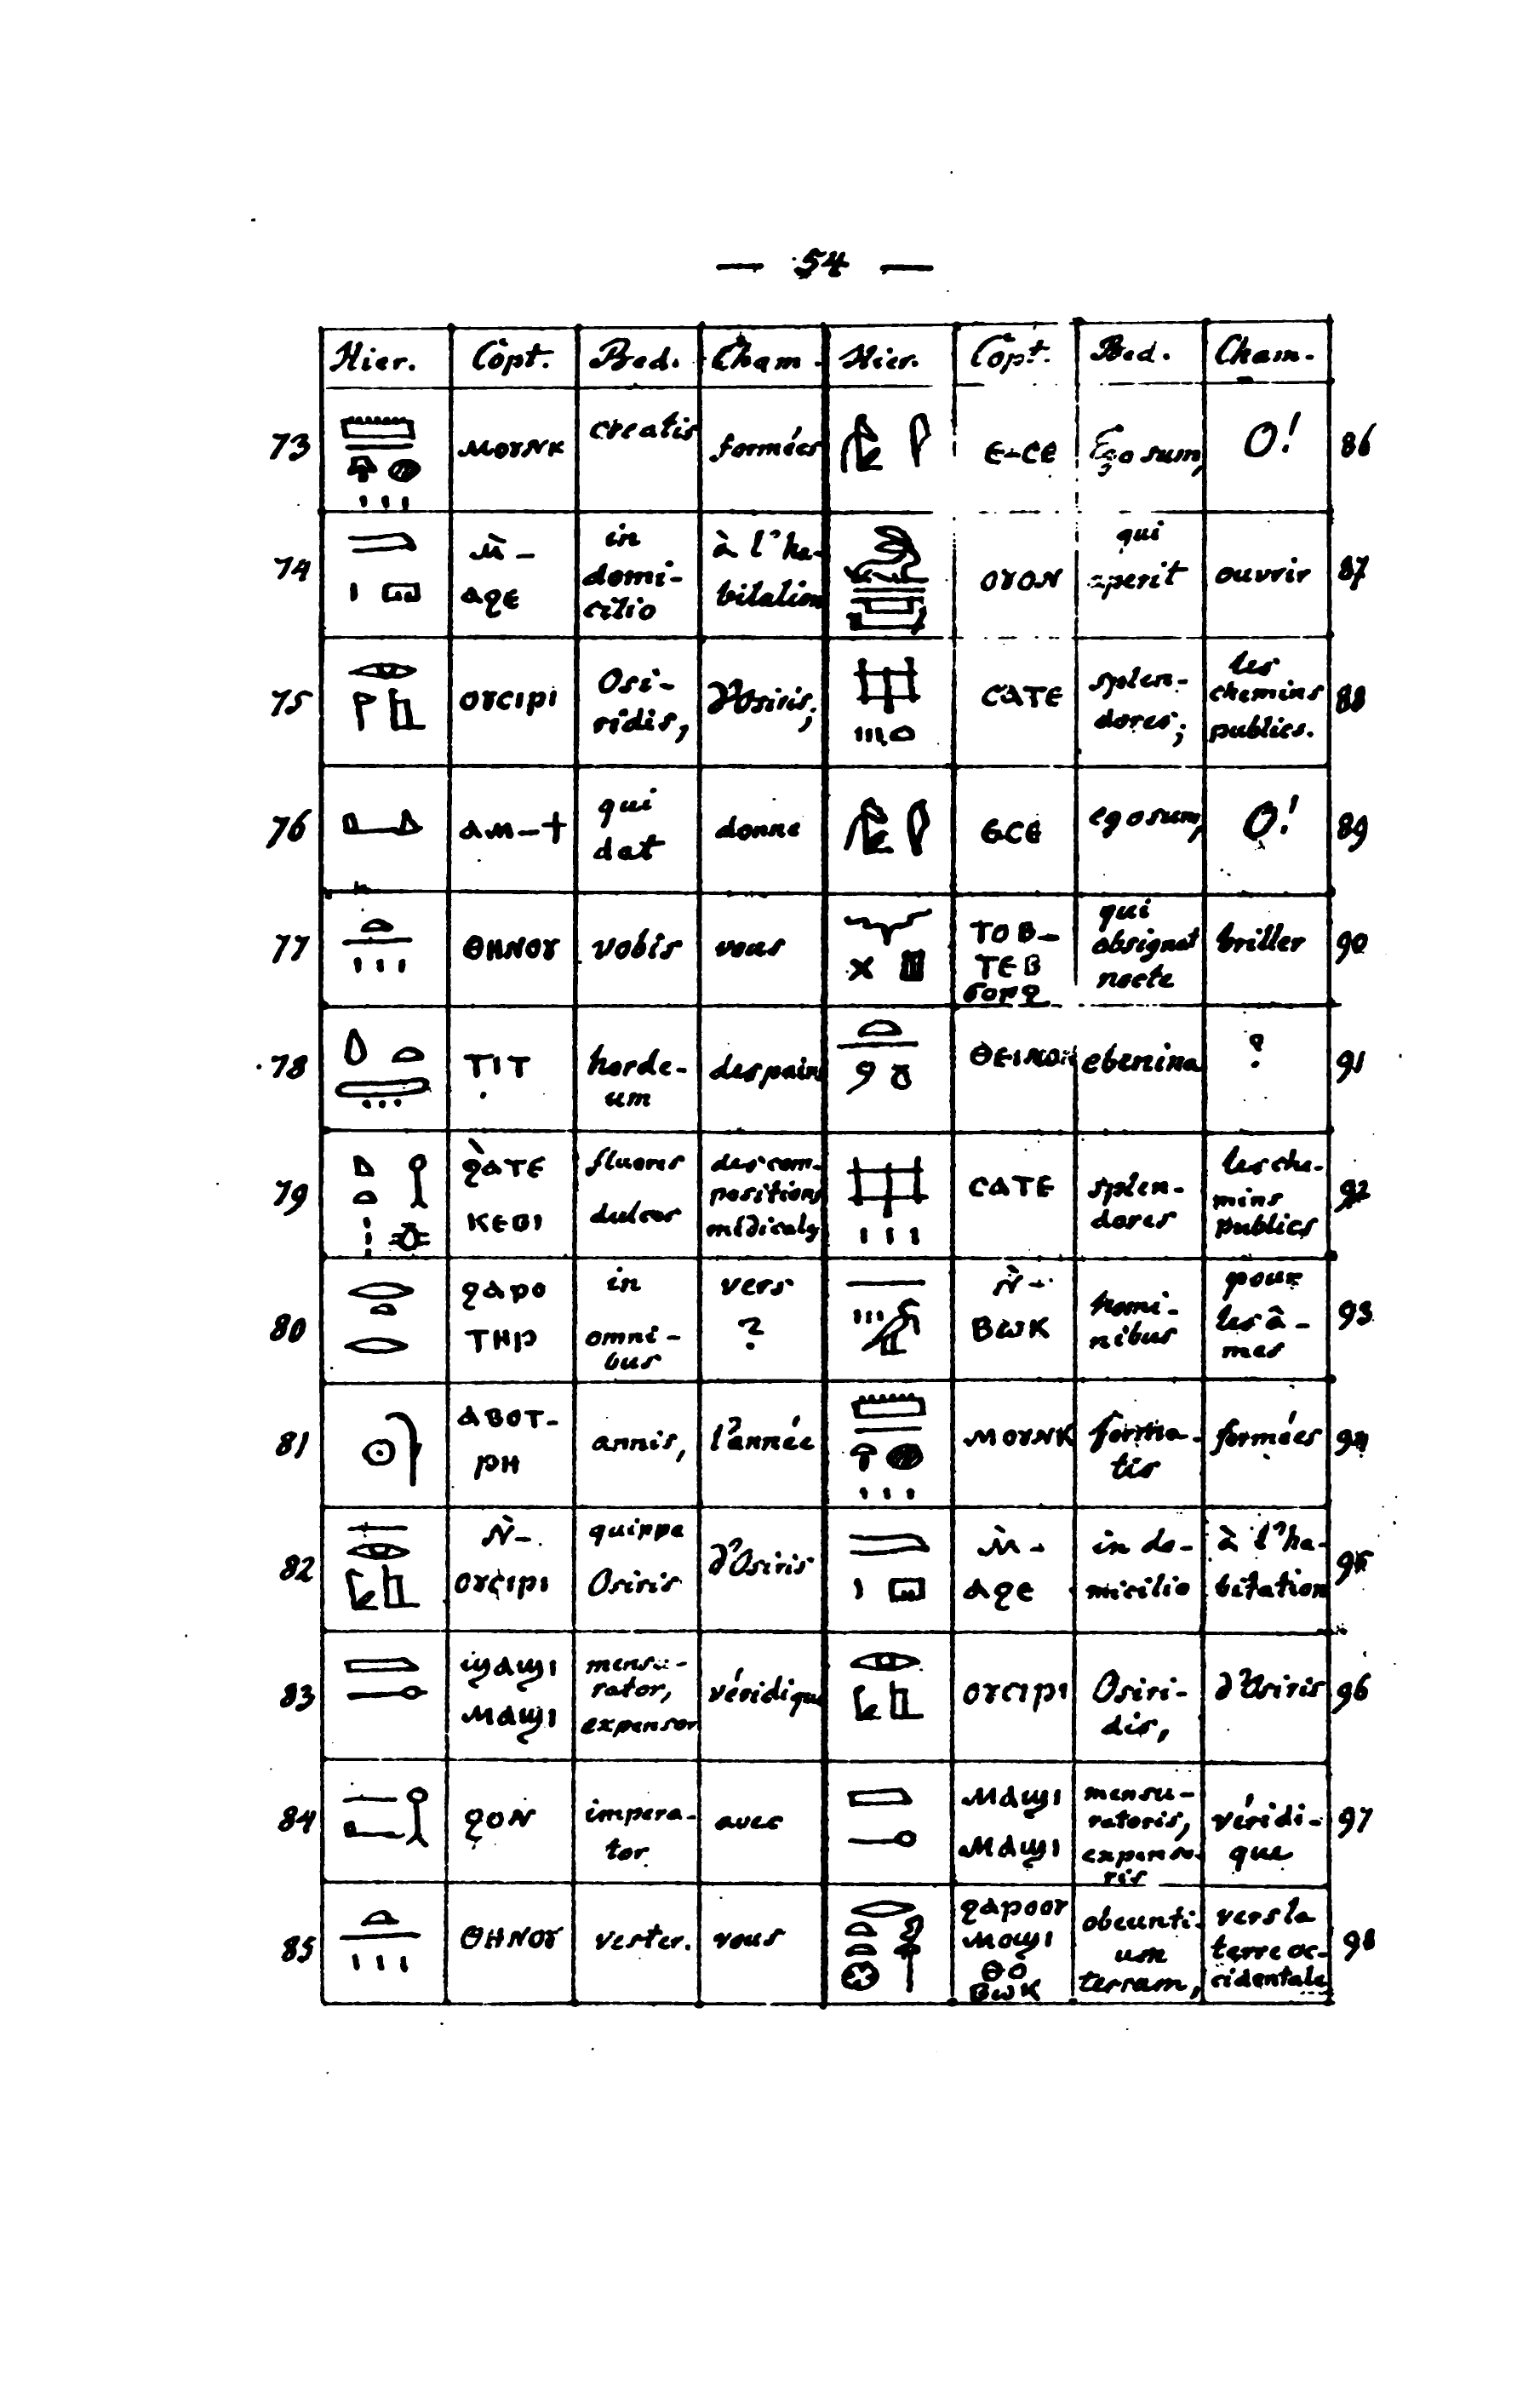 — 54 —
Hier. Copt. Bed. Cham. Hier. Copt. Bed. Cham.
73 ⲙⲟⲩⲛⲕ creatis formées
ⲉ-ⲥⲉ Ego sum, O! 86
74 ⲙ̀-
ⲁϩⲉ
in
domi-
cilio
à l'ha-
bitation
ⲟⲩⲟⲛ
qui
aperit
ouvrir 87
75 ⲟⲩⲥⲓⲣⲓ
Osi-
ridis,
d'Osiris;
ⲥⲁⲧⲉ
splen-
dores;
les
chemins
publics.
88
76 ⲁⲙ-ϯ
qui
dat
donne
ⲉⲥⲉ ego sum, O! 89
77 ⲑⲏⲛⲟⲩ vobis vous
ⲧⲟⲃ-
ⲧⲉⲃ
ϭⲟⲣϩ
qui
obsignat
nocte
briller 90
78 ⲧⲓⲧ
horde-
um
des pains
ebenina ? 91
79 ϩⲁⲧⲉ
ⲕⲉⲃⲓ
fluores
dulces
des com-
positions
médicales
ⲥⲁⲧⲉ
splen-
dores
les che-
mins
publics
92
80 ϩⲁⲣⲟ
ⲧⲏⲣ
in
omni-
bus
vers
?
ⲛ̀-
ⲃⲱⲕ
homi-
nibus
pour
les â-
mes
93
81 ⲁⲃⲟⲧ-
ⲣⲏ
annis, l'année
ⲙⲟⲩⲛⲕ
forma-
tis
formées 94
82 ⲛ̀-
ⲟⲩⲥⲓⲣⲓ
quippe
Osiris
d'Osiris
ⲙ̀-
ⲁϩⲉ
in do-
micilio
à l'ha-
bitation
95
83 ϣⲁϣⲓ
ⲙⲁϣⲓ
mensu-
rator,
expensor
véridique
ⲟⲩⲥⲓⲣⲓ
Osiri-
dis,
d'Osiris 96
84 ϩⲟⲛ
impera-
tor
avec
ⲙⲁϣⲓ
ⲙⲁϣⲓ
mensu-
ratoris,
expenso-
ris
véridi-
que
97
85 ⲑⲏⲛⲟⲩ vester. vous
ϩⲁⲣⲟⲟⲩ
ⲙⲟϣⲓ
ⲑⲟ
ⲃⲱⲕ
obeunti-
um
terram,
vers la
terre oc-
cidentale
98